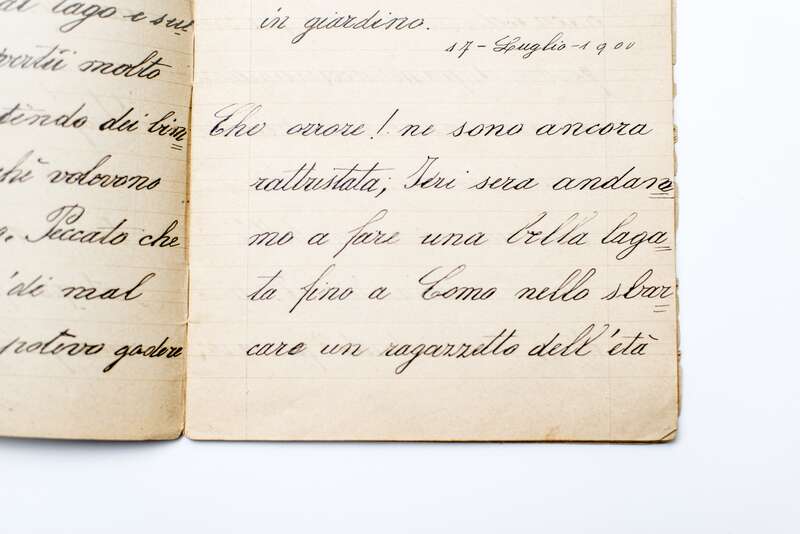 al lago e su
vertii molto
tendo dei bim=
chè volevono
Peccato che
di mal
potevo godere
in giardino.
17-Luglio-1900
Che orrore! ne sono ancora
rattristata; Ieri sera andam=
mo a fare una bella laga=
ta fino a Como nello sbar=
care un ragazzetto dell'età